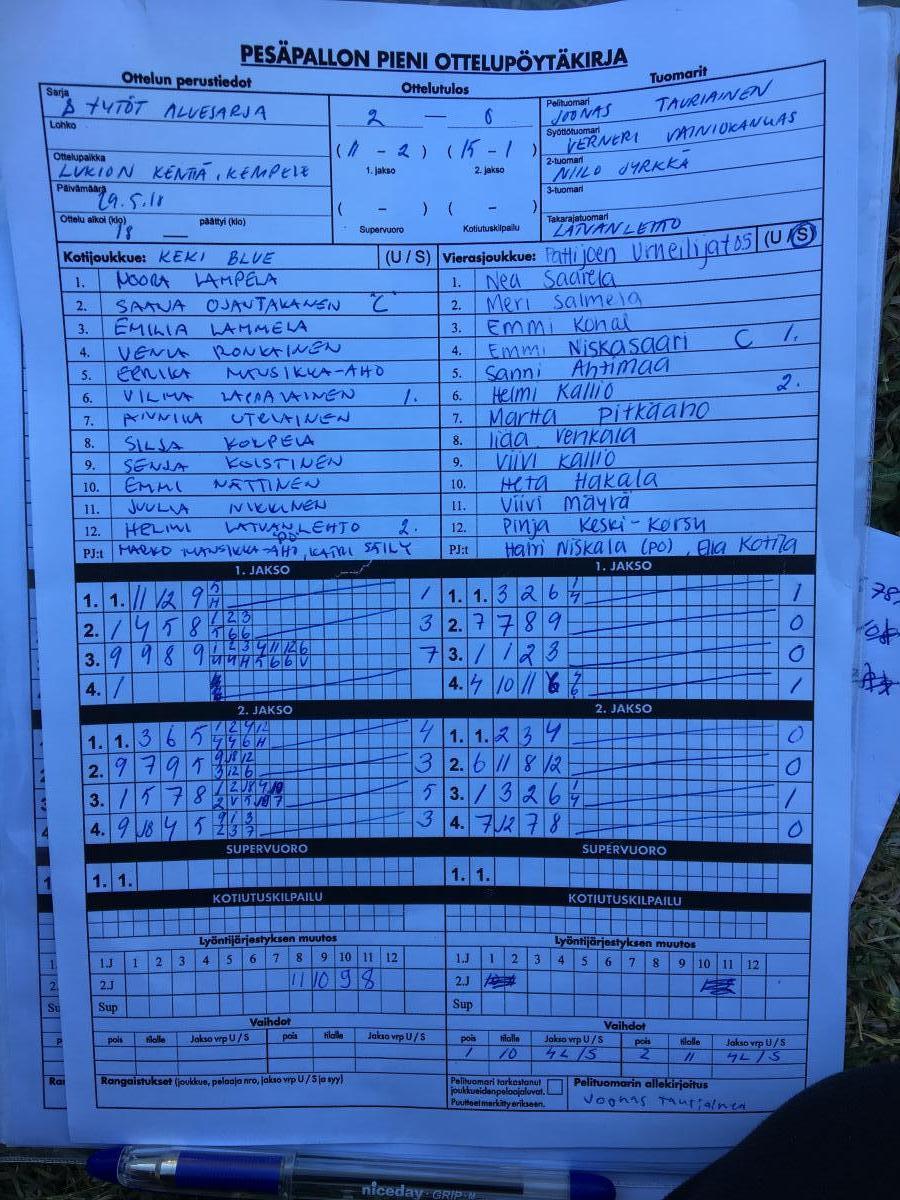 PESÄPALLON PIENI OTTELUPÖYTÄKIRJA
Ottelun perustiedot
Ottelutulos
Tuomarit
Sarja
TYTÖT ALUESARJA
Lohko
Ottelupaikka
LUKION KENTTÄ, KEMPELE
Päivämäärä
29.5.18
Ottelu alkoi (klo) 18 päättyi (klo)
2 — 0
(11 - 2) (15 - 1)
1. jakso 2. jakso
( - ) ( - )
Supervuoro Kotiutuskilpailu
Pelituomari
JOONAS TAURIAINEN
Syöttötuomari
VERNERI VAINIOKANGAS
2-tuomari
NIILO JYRKKÄ
3-tuomari
Takarajatuomari
LATVANLEHTO
Kotijoukkue: KEKI BLUE (U / S)
1. NOORA LAMPELA
2. SAANA OJANTAKANEN C
3. EMILIA LAMMELA
4. VENLA RONKAINEN
5. EERIKA MANSIKKA-AHO
6. VILMA LAPPALAINEN 1.
7. PINNIKA UTRIAINEN
8. SILJA KORPELA
9. SENJA KOISTINEN
10. EMMI NÄTTINEN
11. JUULIA NIKKINEN
12. HELMI LATVANLEHTO 2.
PJ:t MARKO MANSIKKA-AHO PO, KATRI SÄILY
Vierasjoukkue: Pattijoen Urheilijat 05 (U / S)
1. Nea Saarela
2. Meri Salmela
3. Emmi Kohal
4. Emmi Niskasaari C 1.
5. Sanni Ahtimaa
6. Helmi Kallio 2.
7. Martta Pitkäaho
8. Iida Venkala
9. Viivi Kallio
10. Heta Hakala
11. Viivi Mäyrä
12. Pinja Keski-Korsu
PJ:t Harri Niskala (PO), Elia Kotila
1. JAKSO
1. 1. 11 12 9 1
2. 1 4 5 8 3
3. 9 9 8 9 7
4. 1
1. JAKSO
1. 1. 3 2 6 1
2. 7 7 8 9 0
3. 1 1 2 3 0
4. 4 10 11 1
2. JAKSO
1. 1. 3 6 5 4
2. 9 7 9 5 3
3. 1 5 7 8 5
4. 9 10 4 5 3
2. JAKSO
1. 1. 2 3 4 0
2. 6 11 8 12 0
3. 1 3 2 6 1
4. 7 12 7 8 0
SUPERVUORO
1. 1.
SUPERVUORO
1. 1.
KOTIUTUSKILPAILU
KOTIUTUSKILPAILU
Lyöntijärjestyksen muutos
1.J 1 2 3 4 5 6 7 8 9 10 11 12
2.J 11 10 9 8
Sup
Lyöntijärjestyksen muutos
1.J 1 2 3 4 5 6 7 8 9 10 11 12
2.J
Sup
Vaihdot
pois tilalle Jakso vrp U / S pois tilalle Jakso vrp U / S
Vaihdot
pois tilalle Jakso vrp U / S pois tilalle Jakso vrp U / S
1 10 4L/S 2 11 4L/S
Rangaistukset (joukkue, pelaaja nro, jakso vrp U / S ja syy)
Pelituomari tarkastanut
joukkueiden pelaajaluvat.
Puutteet merkitty erikseen.
Pelituomarin allekirjoitus
Joonas Tauriainen
niceday · GRIP